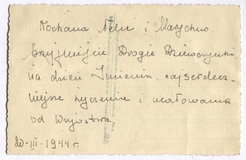 Kochana Nelu i Marychno
Przyjmijcie Drogie Dziewczynki
na dzień Imienin, najserdecz-
niejsze życzenia i ucałowania
od Wujostwa.
20-III-1944 r.